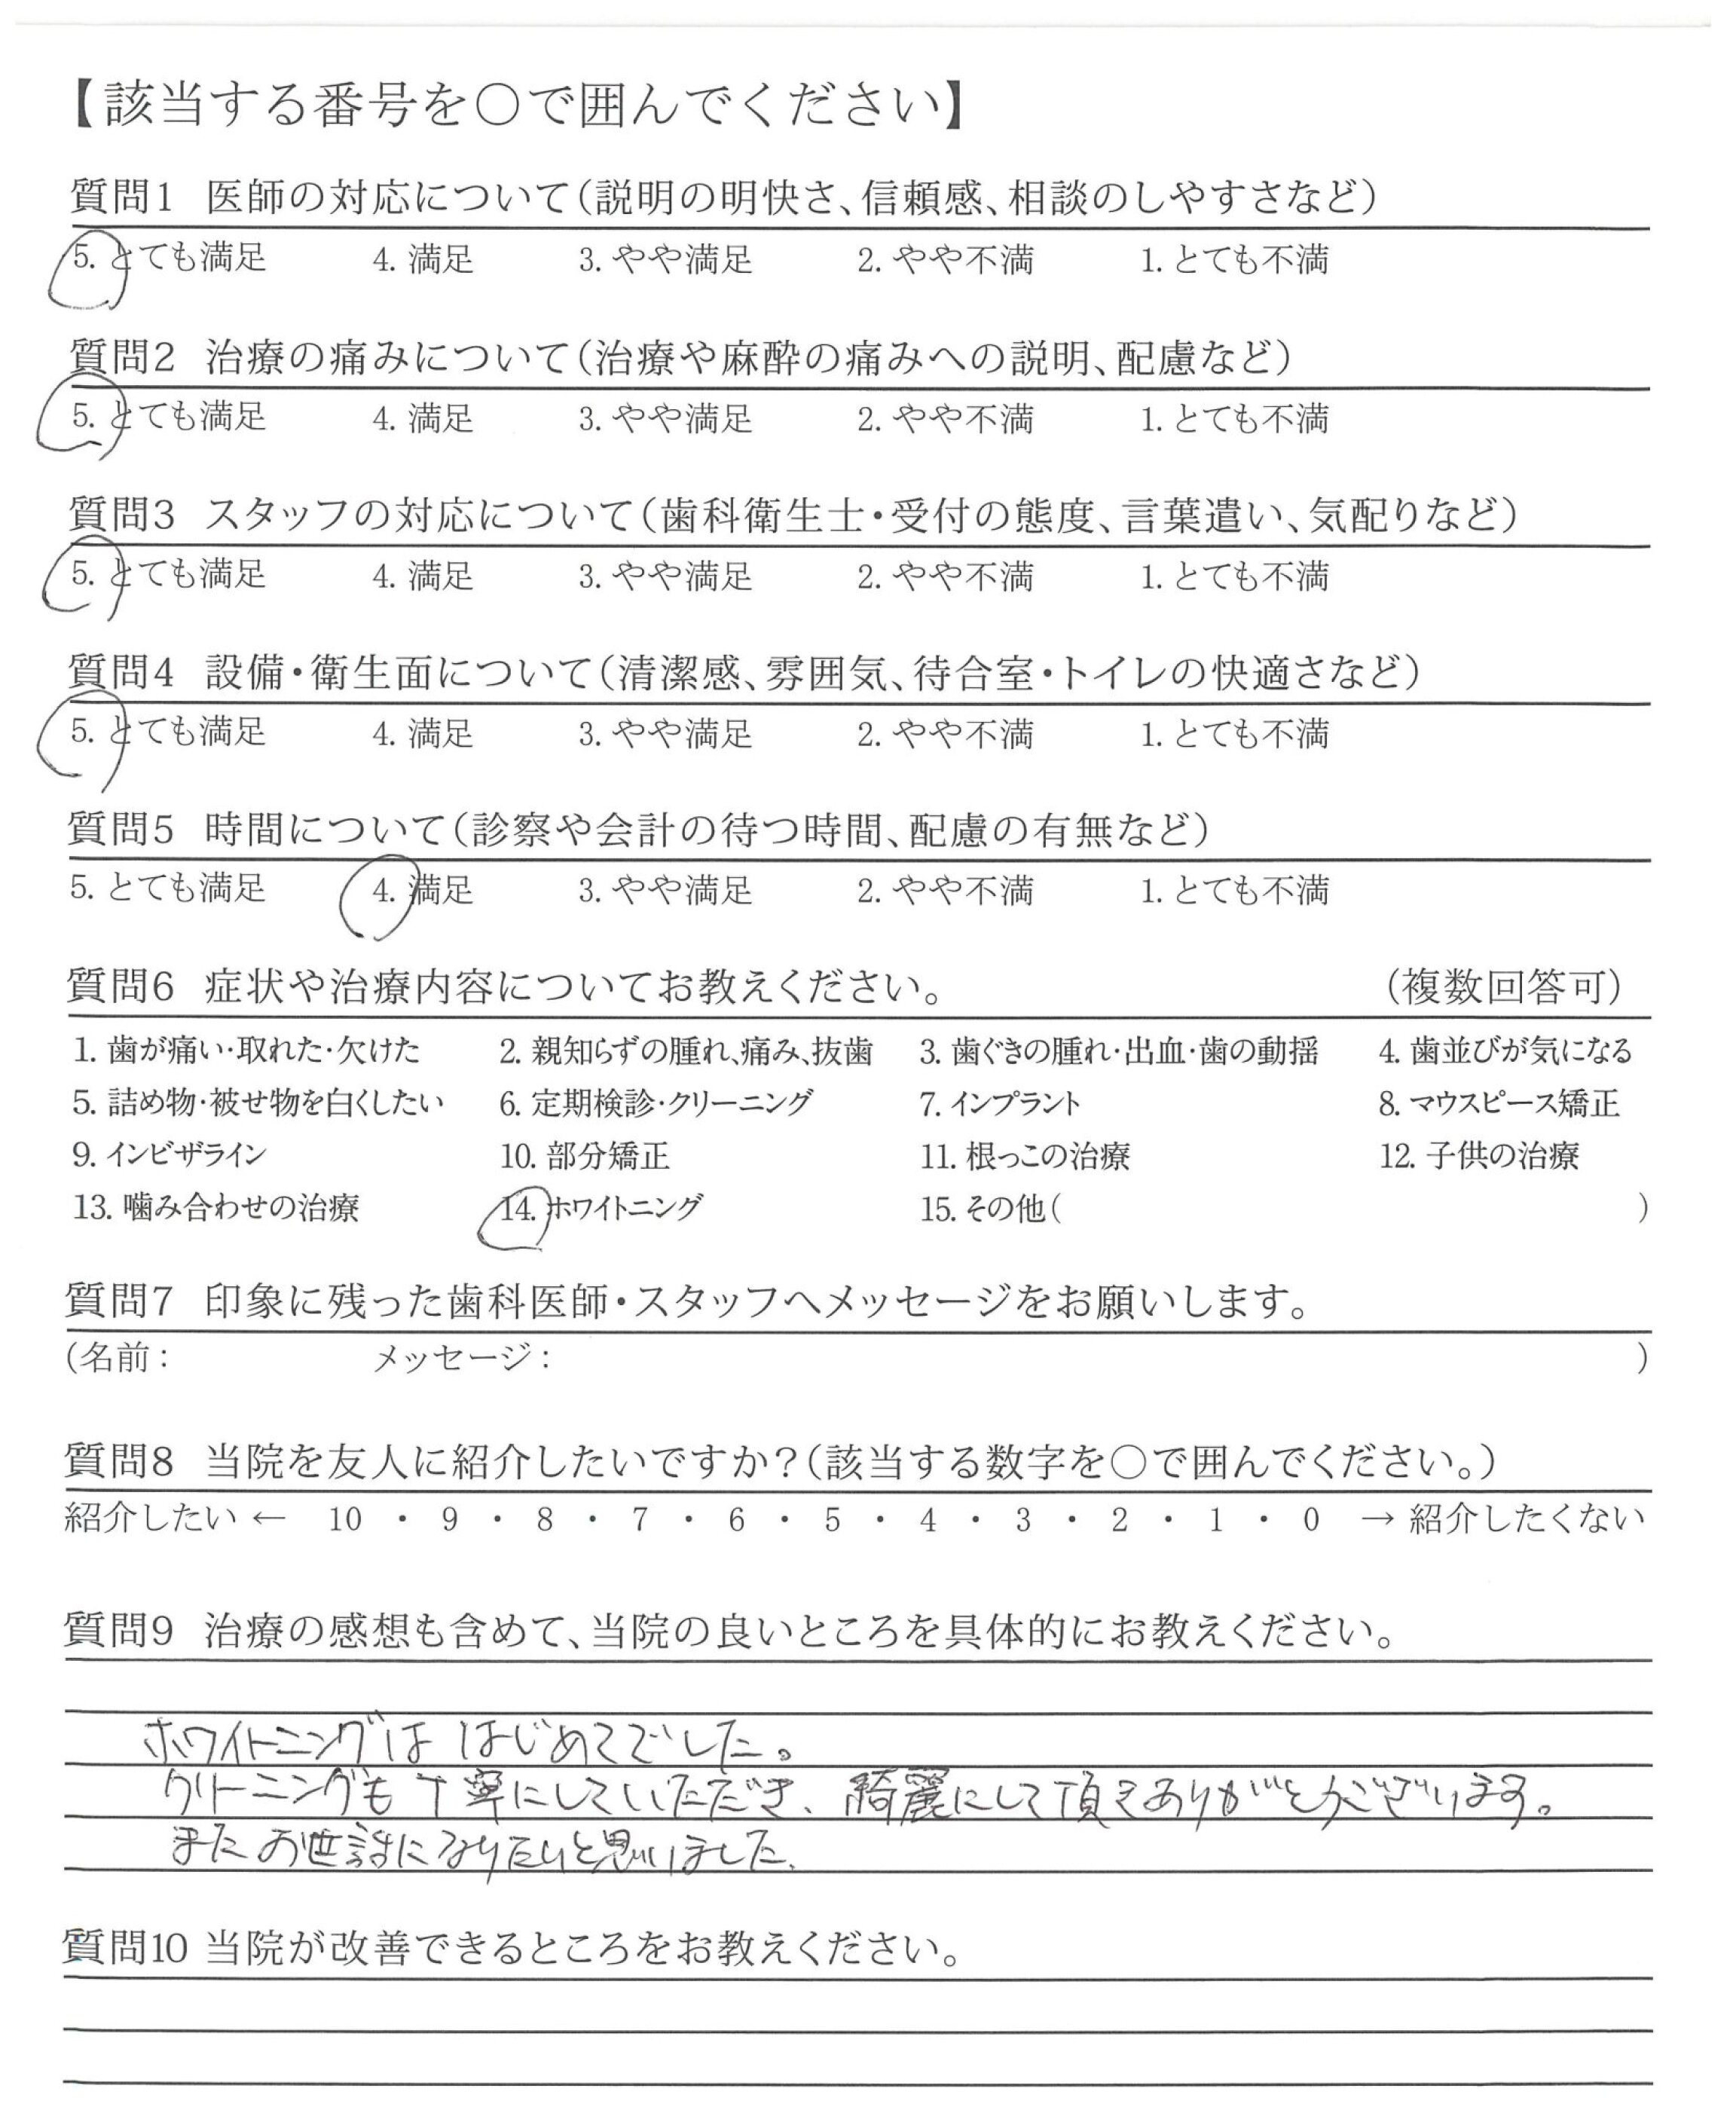 【該当する番号を〇で囲んでください】
質問1 医師の対応について(説明の明快さ、信頼感、相談のしやすさなど)
5. とても満足 4. 満足 3. やや満足 2. やや不満 1. とても不満
質問2 治療の痛みについて(治療や麻酔の痛みへの説明、配慮など)
5. とても満足 4. 満足 3. やや満足 2. やや不満 1. とても不満
質問3 スタッフの対応について(歯科衛生士・受付の態度、言葉遣い、気配りなど)
5. とても満足 4. 満足 3. やや満足 2. やや不満 1. とても不満
質問4 設備・衛生面について(清潔感、雰囲気、待合室・トイレの快適さなど)
5. とても満足 4. 満足 3. やや満足 2. やや不満 1. とても不満
質問5 時間について(診察や会計の待つ時間、配慮の有無など)
5. とても満足 4. 満足 3. やや満足 2. やや不満 1. とても不満
質問6 症状や治療内容についてお教えください。 (複数回答可)
1. 歯が痛い・取れた・欠けた 2. 親知らずの腫れ、痛み、抜歯 3. 歯ぐきの腫れ・出血・歯の動揺 4. 歯並びが気になる
5. 詰め物・被せ物を白くしたい 6. 定期検診・クリーニング 7. インプラント 8. マウスピース矯正
9. インビザライン 10. 部分矯正 11. 根っこの治療 12. 子供の治療
13. 噛み合わせの治療 14. ホワイトニング 15. その他( )
質問7 印象に残った歯科医師・スタッフへメッセージをお願いします。
(名前: メッセージ: )
質問8 当院を友人に紹介したいですか?(該当する数字を〇で囲んでください。)
紹介したい ← 10 ・ 9 ・ 8 ・ 7 ・ 6 ・ 5 ・ 4 ・ 3 ・ 2 ・ 1 ・ 0 → 紹介したくない
質問9 治療の感想も含めて、当院の良いところを具体的にお教えください。
ホワイトニングは はじめてでした。
クリーニングも丁寧にしていただき、綺麗にして頂きありがとうございます。
またお世話になりたいと思いました。
質問10 当院が改善できるところをお教えください。